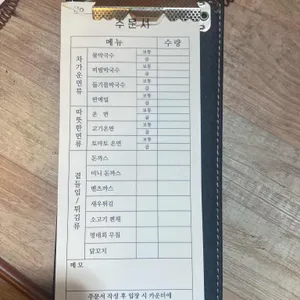 주문서
메뉴 수량
차가운면류
물막국수 보통 곱
비빔막국수 보통 곱
들기름막국수 보통 곱
판메밀 보통 곱
따뜻한면류
온 면 보통 곱
고기온면 보통 곱
토마토 온면 보통 곱
곁들임/튀김류
돈까스
미니 돈까스
멘츠까스
새우튀김
소고기 편채
명태회 무침
닭꼬치
메모
주문서 작성 후 입장 시 카운터에